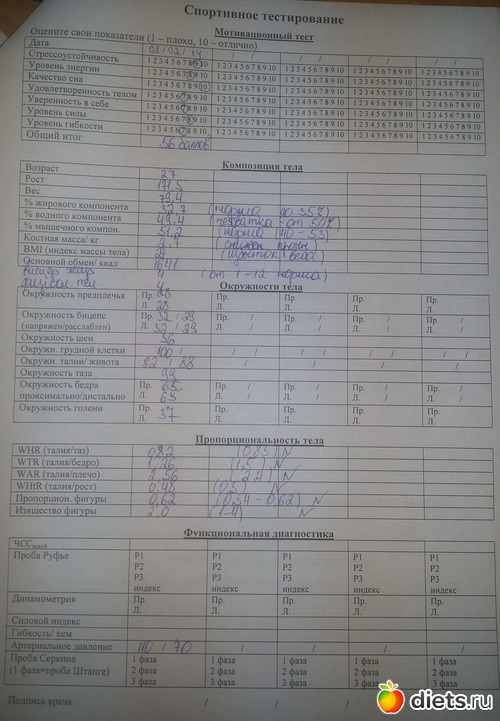 Спортивное тестирование
Мотивационный тест
Оцените свои показатели (1 – плохо, 10 – отлично)
Дата 08/02/14 / / / / / / / /
Стрессоустойчивость 1 2 3 4 5 6 7 8 9 10 1 2 3 4 5 6 7 8 9 10 1 2 3 4 5 6 7 8 9 10 1 2 3 4 5 6 7 8 9 10 1 2 3 4 5 6 7 8 9 10
Уровень энергии 1 2 3 4 5 6 7 8 9 10 1 2 3 4 5 6 7 8 9 10 1 2 3 4 5 6 7 8 9 10 1 2 3 4 5 6 7 8 9 10 1 2 3 4 5 6 7 8 9 10
Качество сна 1 2 3 4 5 6 7 8 9 10 1 2 3 4 5 6 7 8 9 10 1 2 3 4 5 6 7 8 9 10 1 2 3 4 5 6 7 8 9 10 1 2 3 4 5 6 7 8 9 10
Удовлетворенность телом 1 2 3 4 5 6 7 8 9 10 1 2 3 4 5 6 7 8 9 10 1 2 3 4 5 6 7 8 9 10 1 2 3 4 5 6 7 8 9 10 1 2 3 4 5 6 7 8 9 10
Уверенность в себе 1 2 3 4 5 6 7 8 9 10 1 2 3 4 5 6 7 8 9 10 1 2 3 4 5 6 7 8 9 10 1 2 3 4 5 6 7 8 9 10 1 2 3 4 5 6 7 8 9 10
Уровень силы 1 2 3 4 5 6 7 8 9 10 1 2 3 4 5 6 7 8 9 10 1 2 3 4 5 6 7 8 9 10 1 2 3 4 5 6 7 8 9 10 1 2 3 4 5 6 7 8 9 10
Уровень гибкости 1 2 3 4 5 6 7 8 9 10 1 2 3 4 5 6 7 8 9 10 1 2 3 4 5 6 7 8 9 10 1 2 3 4 5 6 7 8 9 10 1 2 3 4 5 6 7 8 9 10
Общий итог 56 баллов
Композиция тела
Возраст 27
Рост 171,5
Вес 79,4
% жирового компонента 32,7 (норма до 35%)
% водного компонента 49,4 (нехватка от 50%)
% мышечного компон. 51,2 норма (40-53)
Костная масса/ кг 2,7
BMI (индекс массы тела) (избыток веса)
Основной обмен/ ккал 1641
4 (от 1-12 норма)
4
Окружности тела
Окружность предплечья Пр. 28 Пр. Пр. Пр. Пр.
Л. 28 Л. Л. Л. Л.
Окружность бицепс Пр. 32 / 29 Пр. / Пр. / Пр. / Пр. /
(напряжен/расслаблен) Л. 32 / 29 Л. / Л. / Л. / Л. /
Окружность шеи 36
Окружн. грудной клетки 100 / / / / / / / / /
Окружн. талии/ живота 82 / 88 / / / /
Окружность таза 99
Окружность бедра Пр. 65 Пр. / Пр. / Пр. / Пр. /
проксимально/дистально Л. 65 Л. / Л. / Л. / Л. /
Окружность голени Пр. Пр. Пр. Пр. Пр.
Л. 37 Л. Л. Л. Л.
Пропорциональность тела
WHR (талия/таз) 0,82 (0,85) N
WTR (талия/бедро) 1,26 (1,5) N
WAR (талия/плечо) 2,56 2,4 N
WHtR (талия/рост) 0,48 (0,5 N
Пропорцион. фигуры 0,62 (0,54-0,62) N
Изящество фигуры 2,0 (1-4) N
Функциональная диагностика
ЧСС
Проба Руфье Р1 Р1 Р1 Р1 Р1
Р2 Р2 Р2 Р2 Р2
Р3 Р3 Р3 Р3 Р3
индекс индекс индекс индекс индекс
Динамометрия Пр. Пр. Пр. Пр. Пр.
Л. Л. Л. Л. Л.
Силовой индекс
Гибкость/ ±см
Артериальное давление 110 / 70 / / / /
Проба Серкина 1 фаза 1 фаза 1 фаза 1 фаза 1 фаза
(1 фаза=проба Штанге) 2 фаза 2 фаза 2 фаза 2 фаза 2 фаза
3 фаза 3 фаза 3 фаза 3 фаза 3 фаза
Подпись врача / / / /
diets.ru